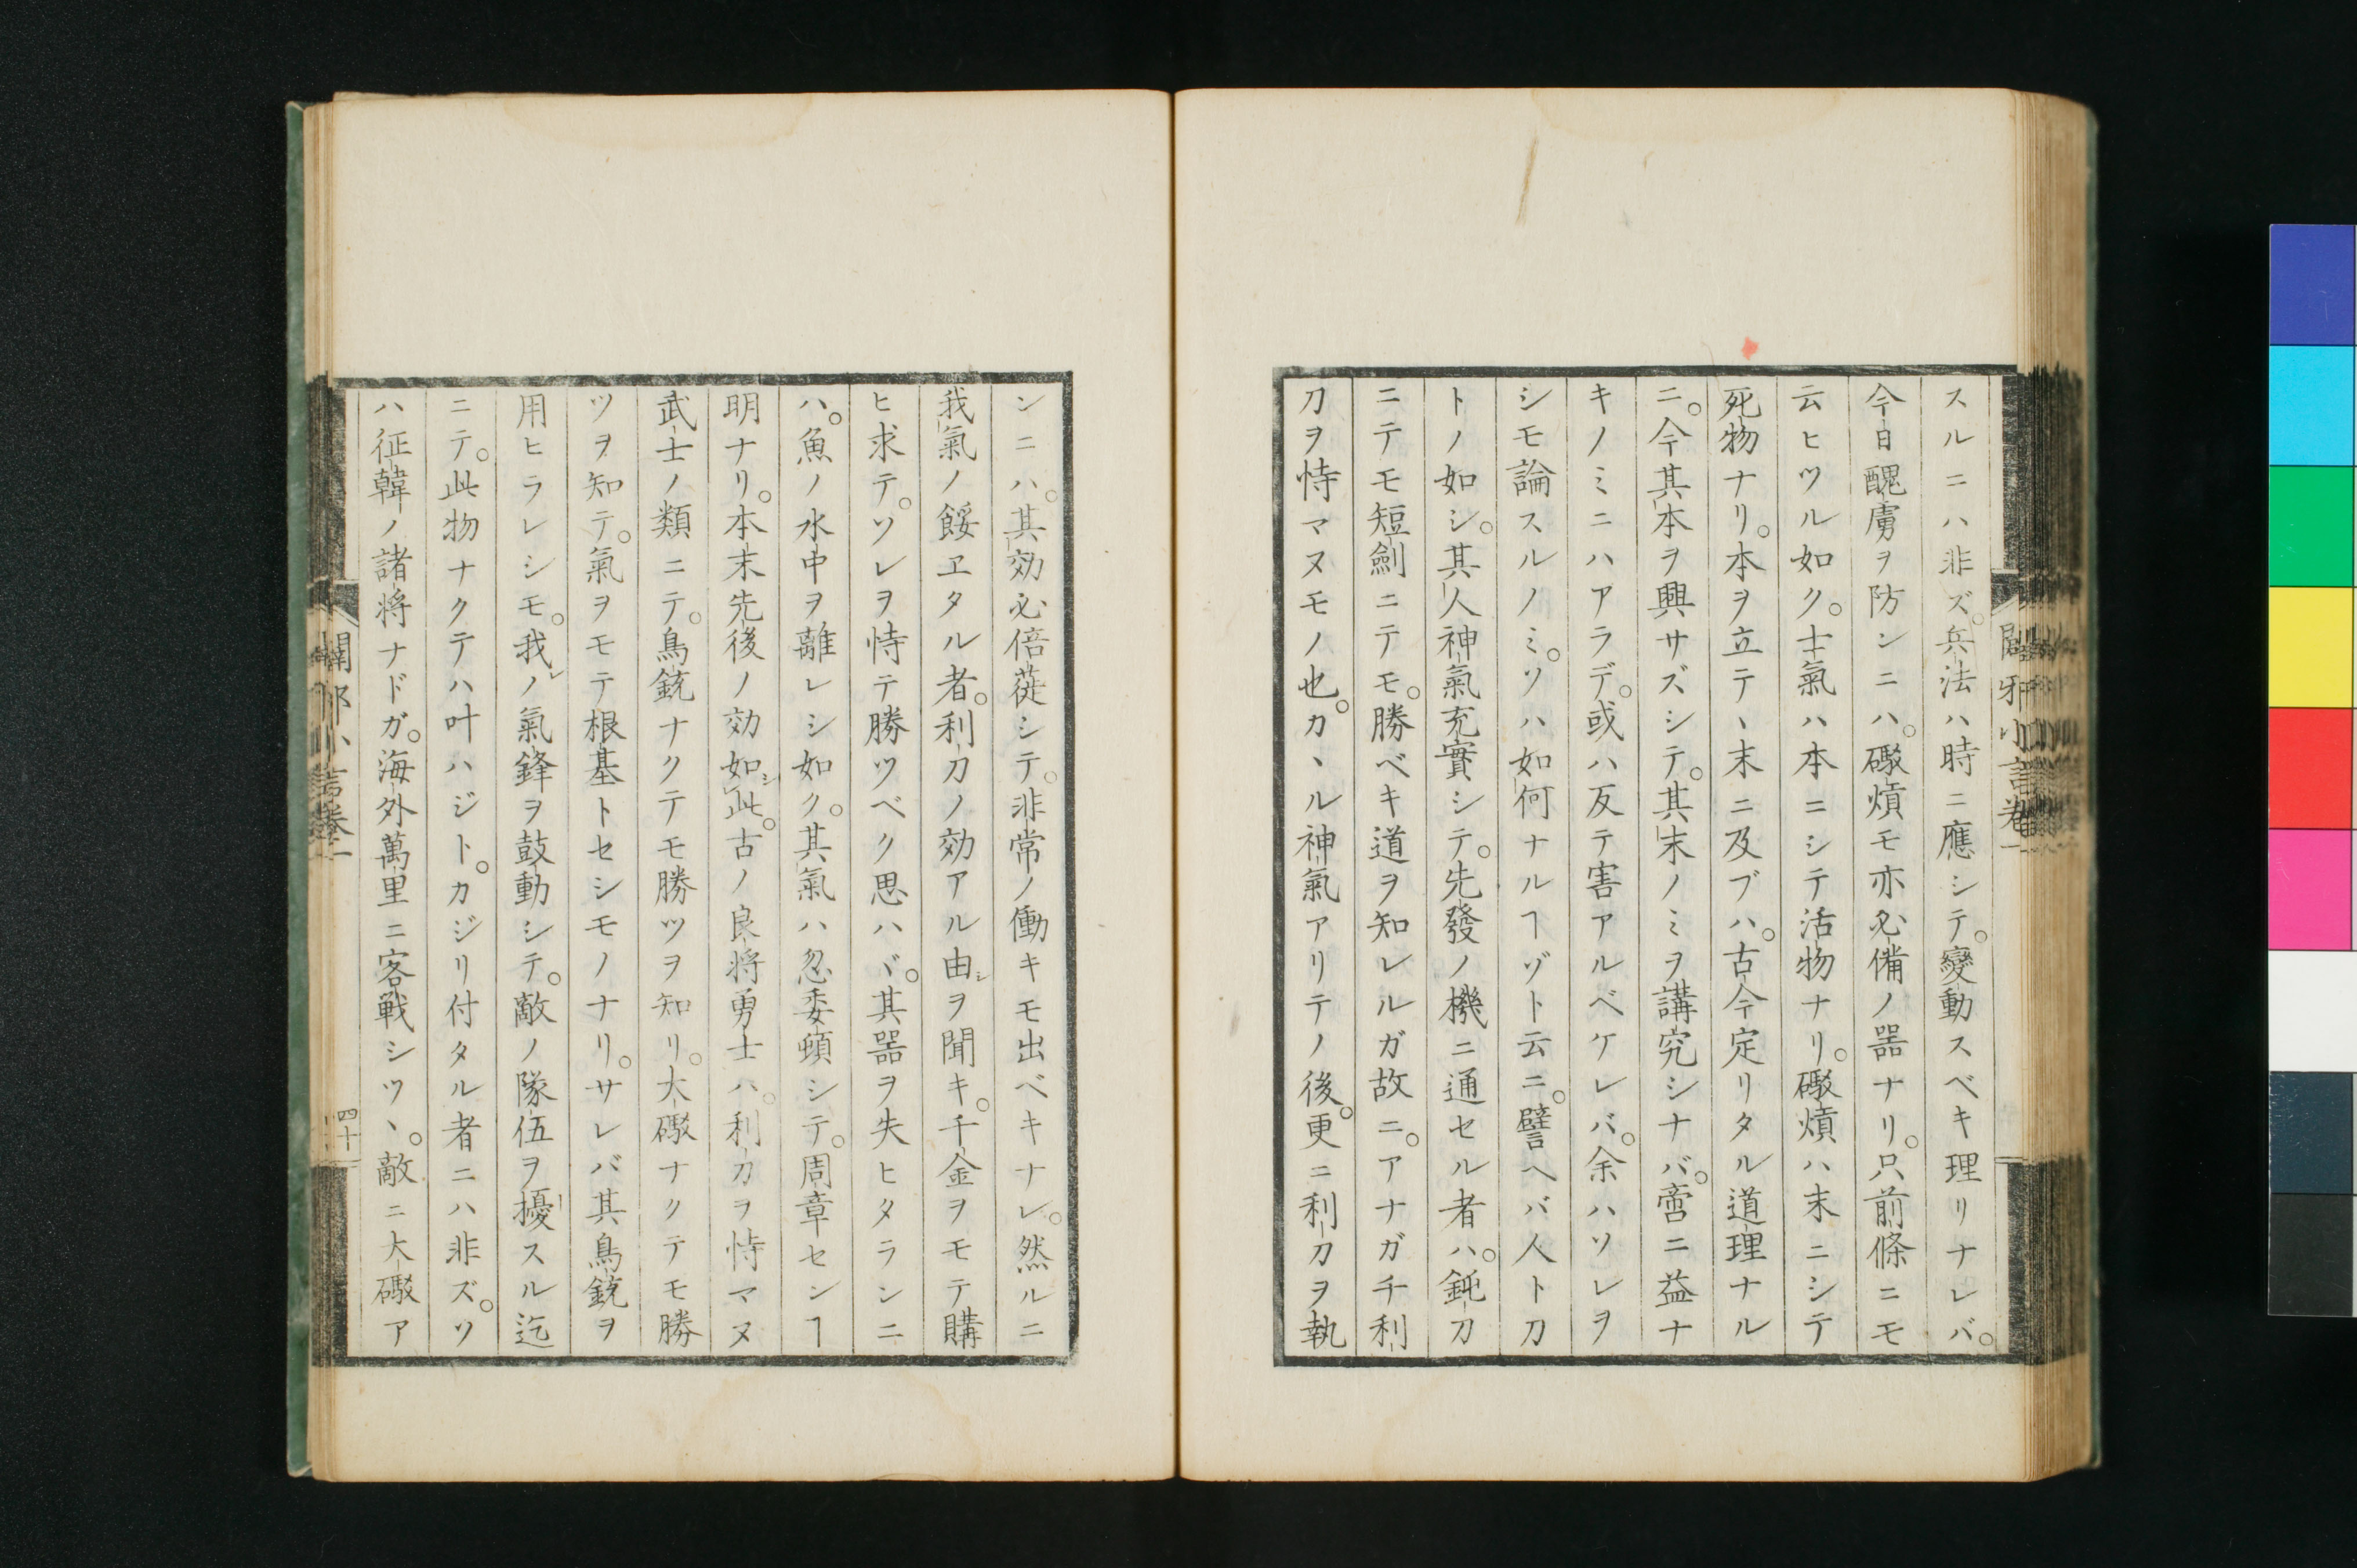 スルニハ非ズ。兵法ハ時ニ應シテ。變動スベキ理リナレバ。
今日醜虜ヲ防ンニハ。礮熕モ亦必備ノ噐ナリ。只前條ニモ
云ヒツル如ク。士氣ハ本ニシテ活物ナリ。礮熕ハ末ニシテ
死物ナリ。本ヲ立テヽ末ニ及ブハ。古今定リタル道理ナル
ニ。今其本ヲ興サズシテ。其末ノミヲ講究シナバ。啻ニ益ナ
キノミニハアラデ。或ハ反テ害アルベケレバ。余ハソレヲ
シモ論スルノミ。ソハ如何ナルヿゾト云ニ。譬ヘバ人ト刀
トノ如シ。其人神氣充實シテ。先發ノ機ニ通セル者ハ。鈍刀
ニテモ短劍ニテモ。勝ベキ道ヲ知レルガ故ニ。アナガチ利
刀ヲ恃マヌモノ也。カヽル神氣アリテノ後。更ニ利刀ヲ執
ンニハ。其効必倍蓰シテ。非常ノ働キモ出ベキナレ。然ルニ
我氣ノ餒ヱタル者。利刀ノ効アル由シヲ聞キ。千金ヲモテ購
ヒ求テ。ソレヲ恃テ勝ツベク思ハヾ。其噐ヲ失ヒタランニ
ハ。魚ノ水中ヲ離レシ如ク。其氣ハ忽委頓シテ。周章センヿ
明ナリ。本末先後ノ効如シ此。古ノ良将勇士ハ。利刀ヲ恃マヌ
武士ノ類ニテ。鳥銃ナクテモ勝ツヲ知リ。大礮ナクテモ勝
ツヲ知テ。氣ヲモテ根基トセシモノナリ。サレバ其鳥銃ヲ
用ヒラレシモ。我レノ氣鋒ヲ鼓動シテ。敵ノ隊伍ヲ擾スル迄
ニテ。此物ナクテハ叶ハジト。カジリ付タル者ニハ非ズ。ソ
ハ征韓ノ諸将ナドガ。海外萬里ニ客戦シツヽ。敵ニ大礮ア
闢邪小言卷一
四十